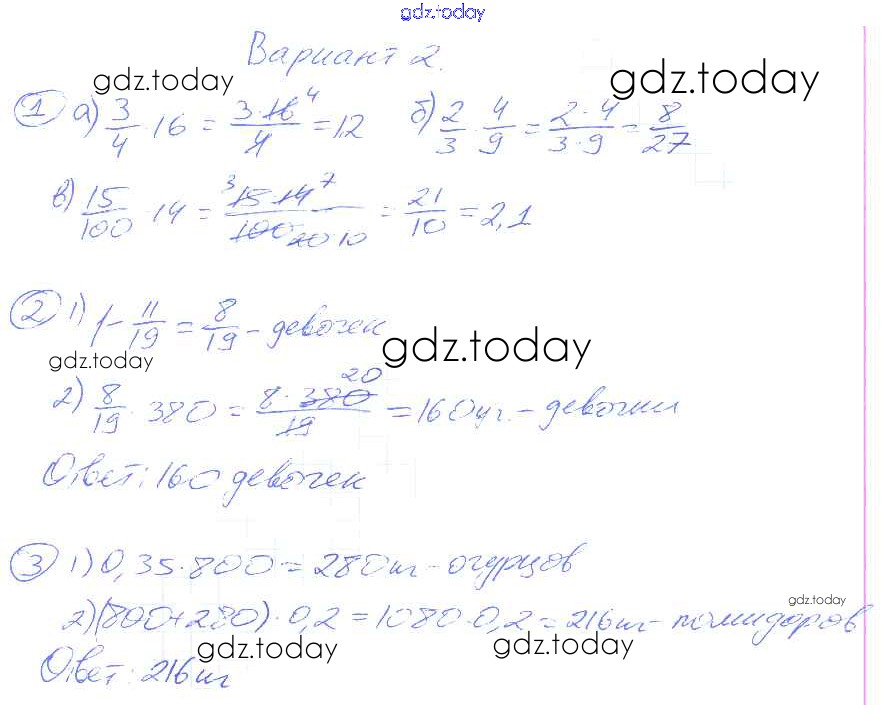 gdz.today
Вариант 2.
gdz.today gdz.today
① а) 3/4 · 16 = 3·16 4/4 = 12 б) 2/3 · 4/9 = 2·4/3·9 = 8/27
в) 15/100 · 14 = 3 15·14 7/100 20 10 = 21/10 = 2,1
② 1) 1 - 11/19 = 8/19 - девочек
gdz.today gdz.today
2) 8/19 · 380 = 8·380 20/19 = 160 уч. - девочки
Ответ: 160 девочек
③ 1) 0,35·800 = 280 шт - огурцов
gdz.today
2) (800+280)·0,2 = 1080·0,2 = 216 шт - помидоров
gdz.today gdz.today
Ответ: 216 шт